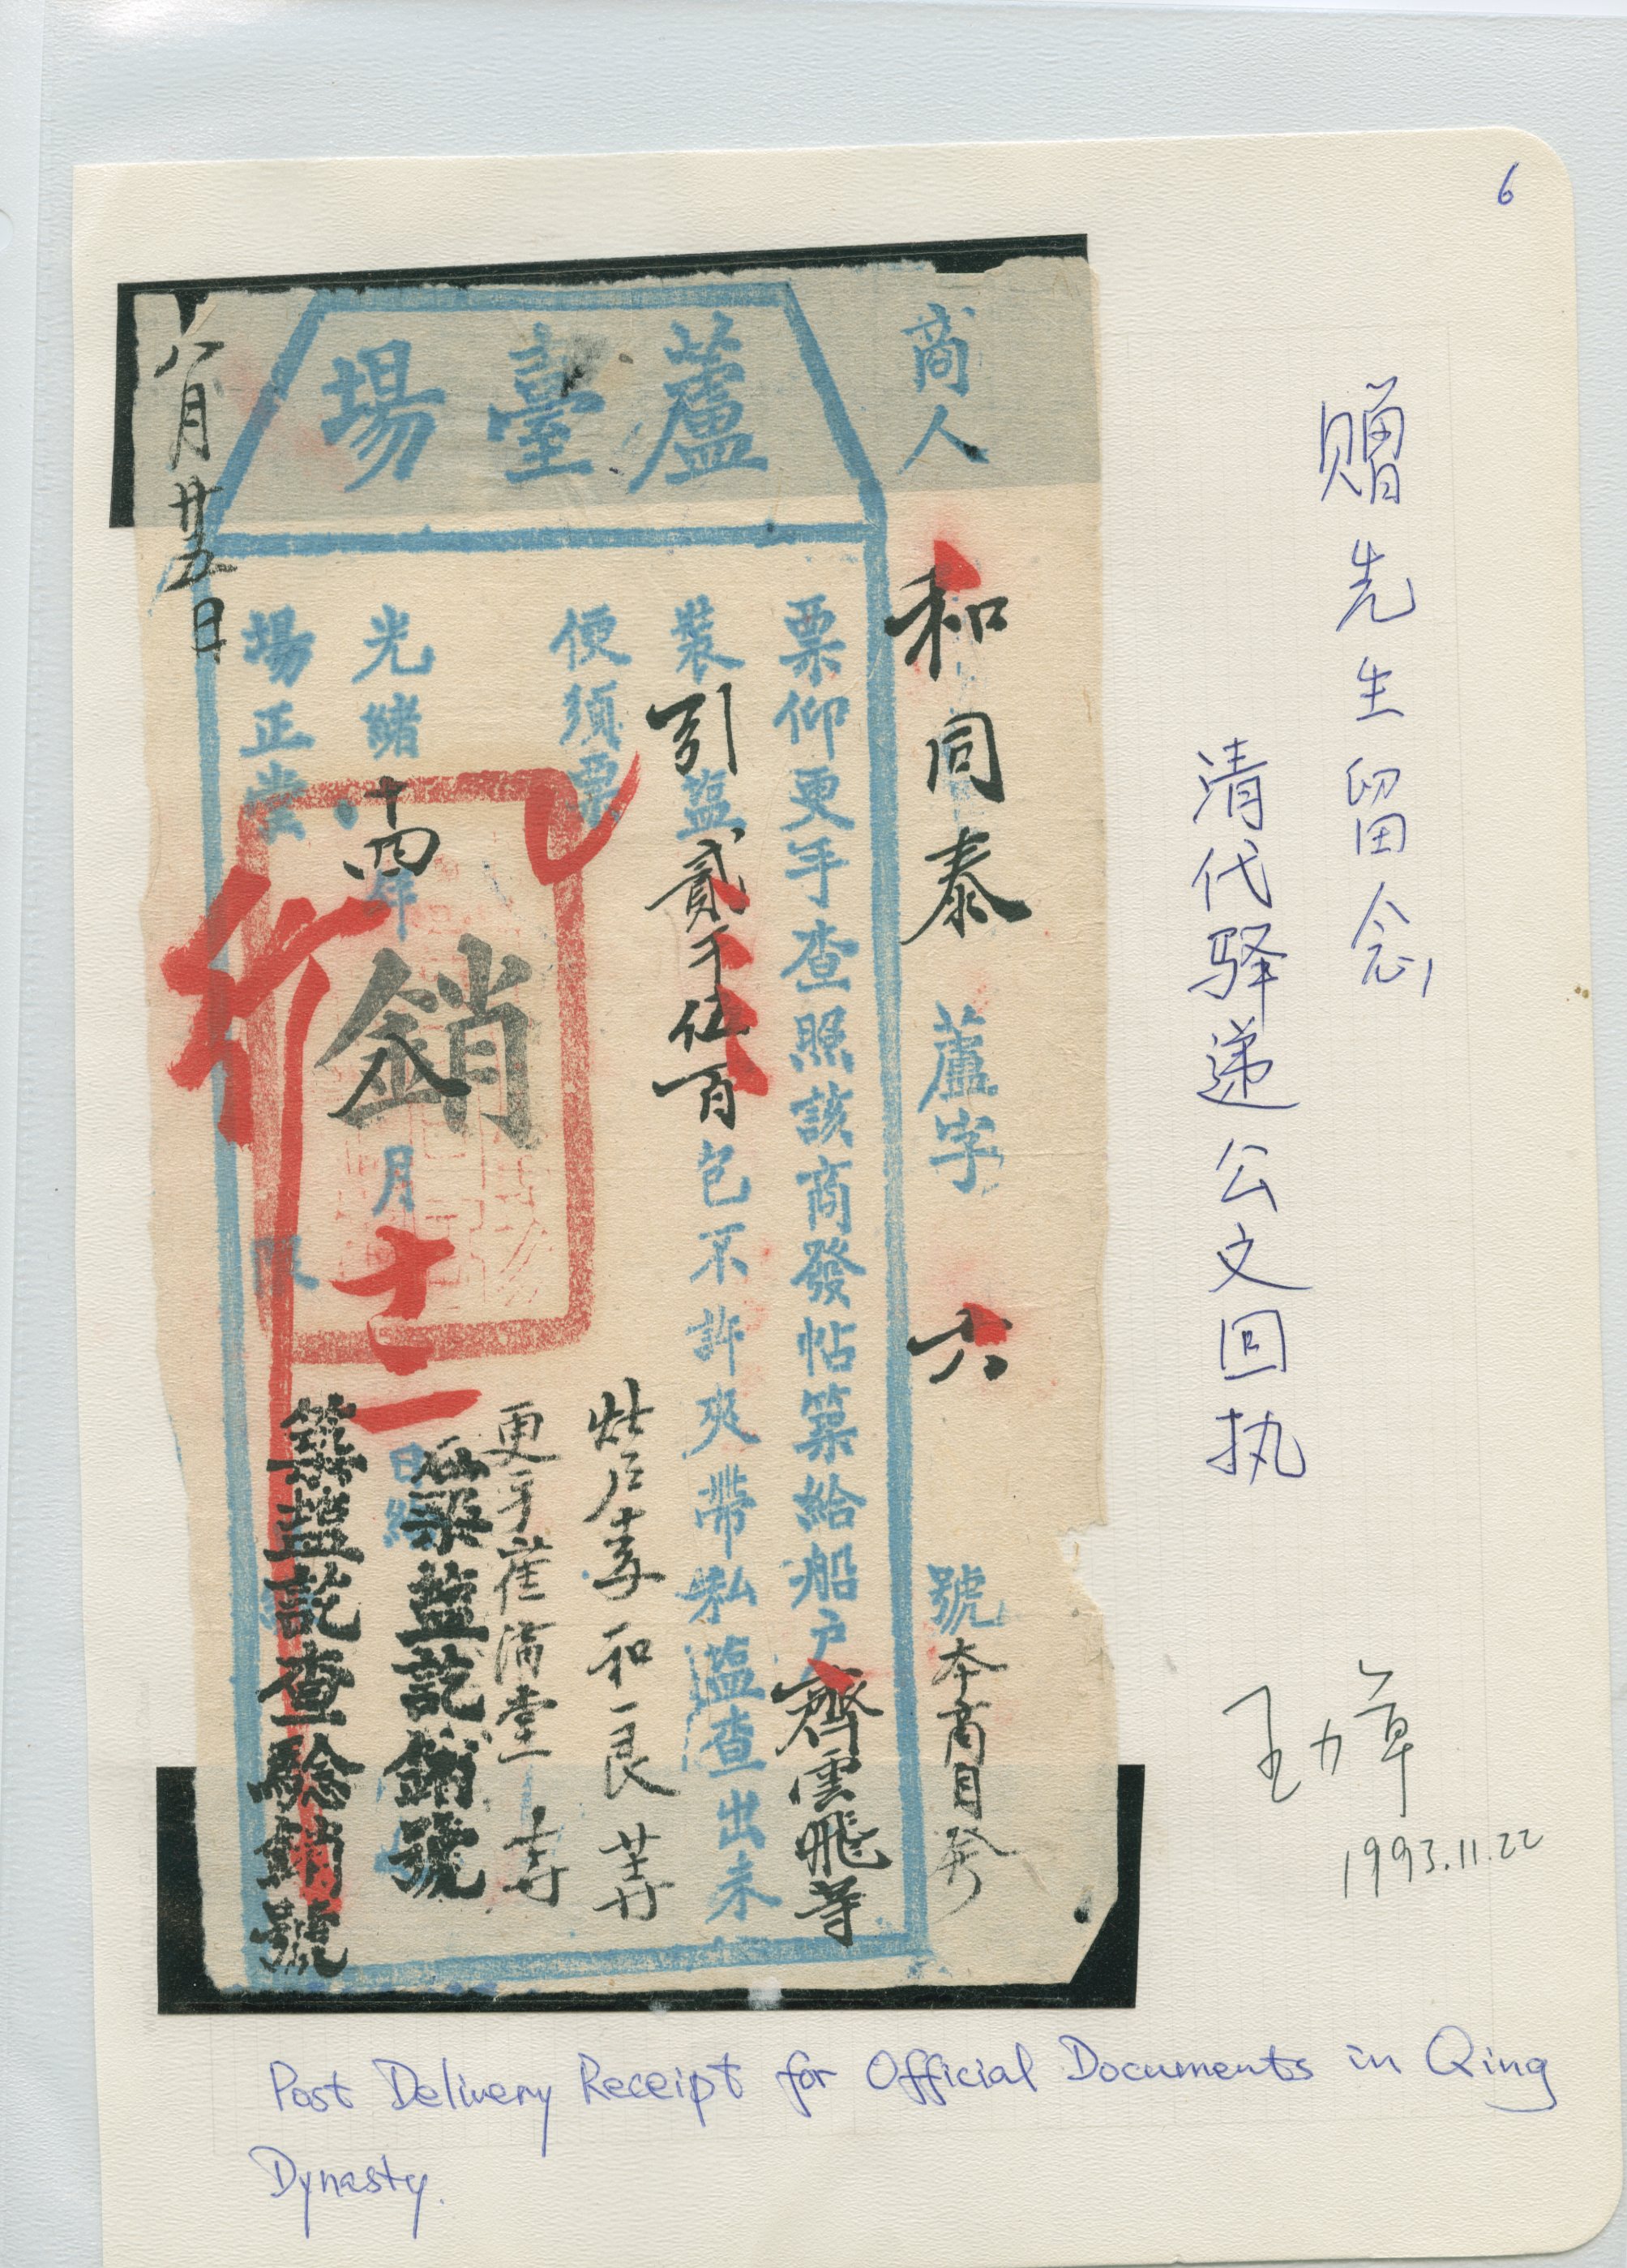 6
蘆臺場
商人和同泰 蘆字 六 號本商自發
票仰更手查照該商發帖築給船户齊雲飛等
裝引鹽貳千伍百包不許夾帶私鹽查出未
便須票
灶户李和良
更手崔滿堂
光緒十四年八月十二日給
銷
築鹽訖銷號
場正堂 行 限
築鹽訖查驗銷號
八月廿五日
赠先生留念
清代驿递公文回执
1993.11.22
Post Delivery Receipt for Official Documents in Qing
Dynasty.